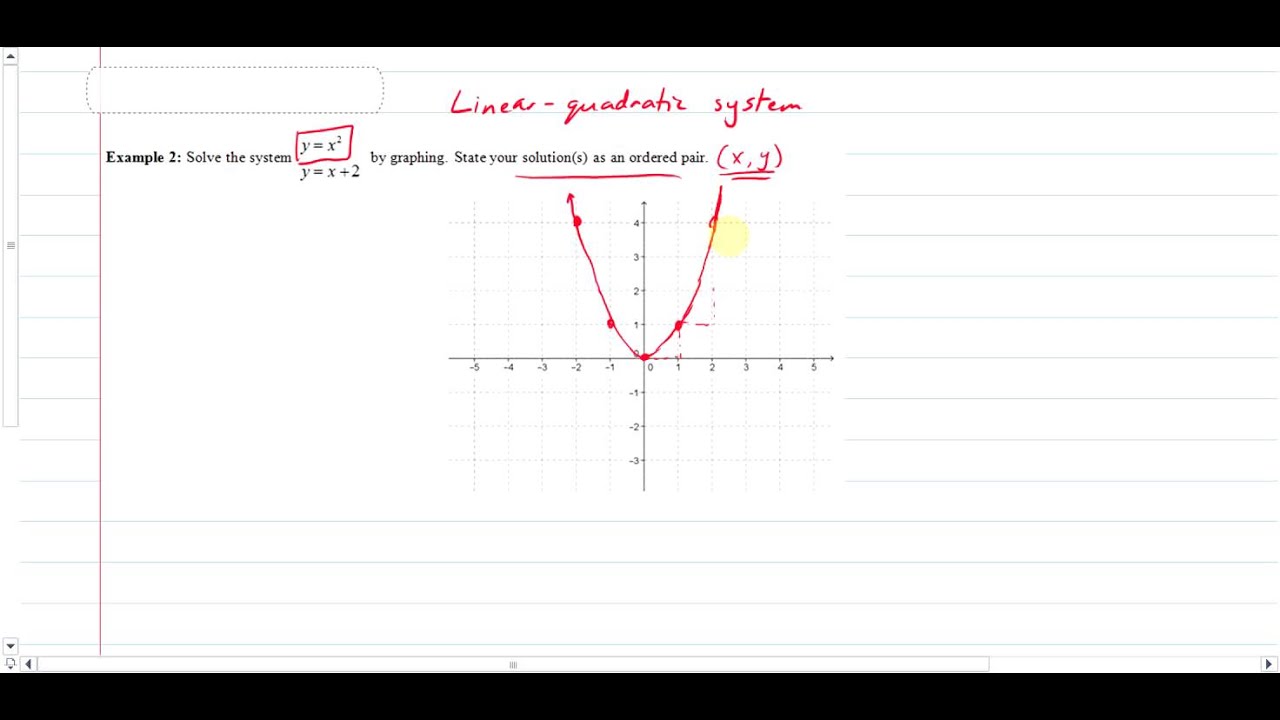 Linear-quadratic system
Example 2: Solve the system y = x² by graphing. State your solution(s) as an ordered pair. (x, y)
y = x + 2
4
3
2
1
0
-5 -4 -3 -2 -1 0 1 2 3 4 5
-1
-2
-3